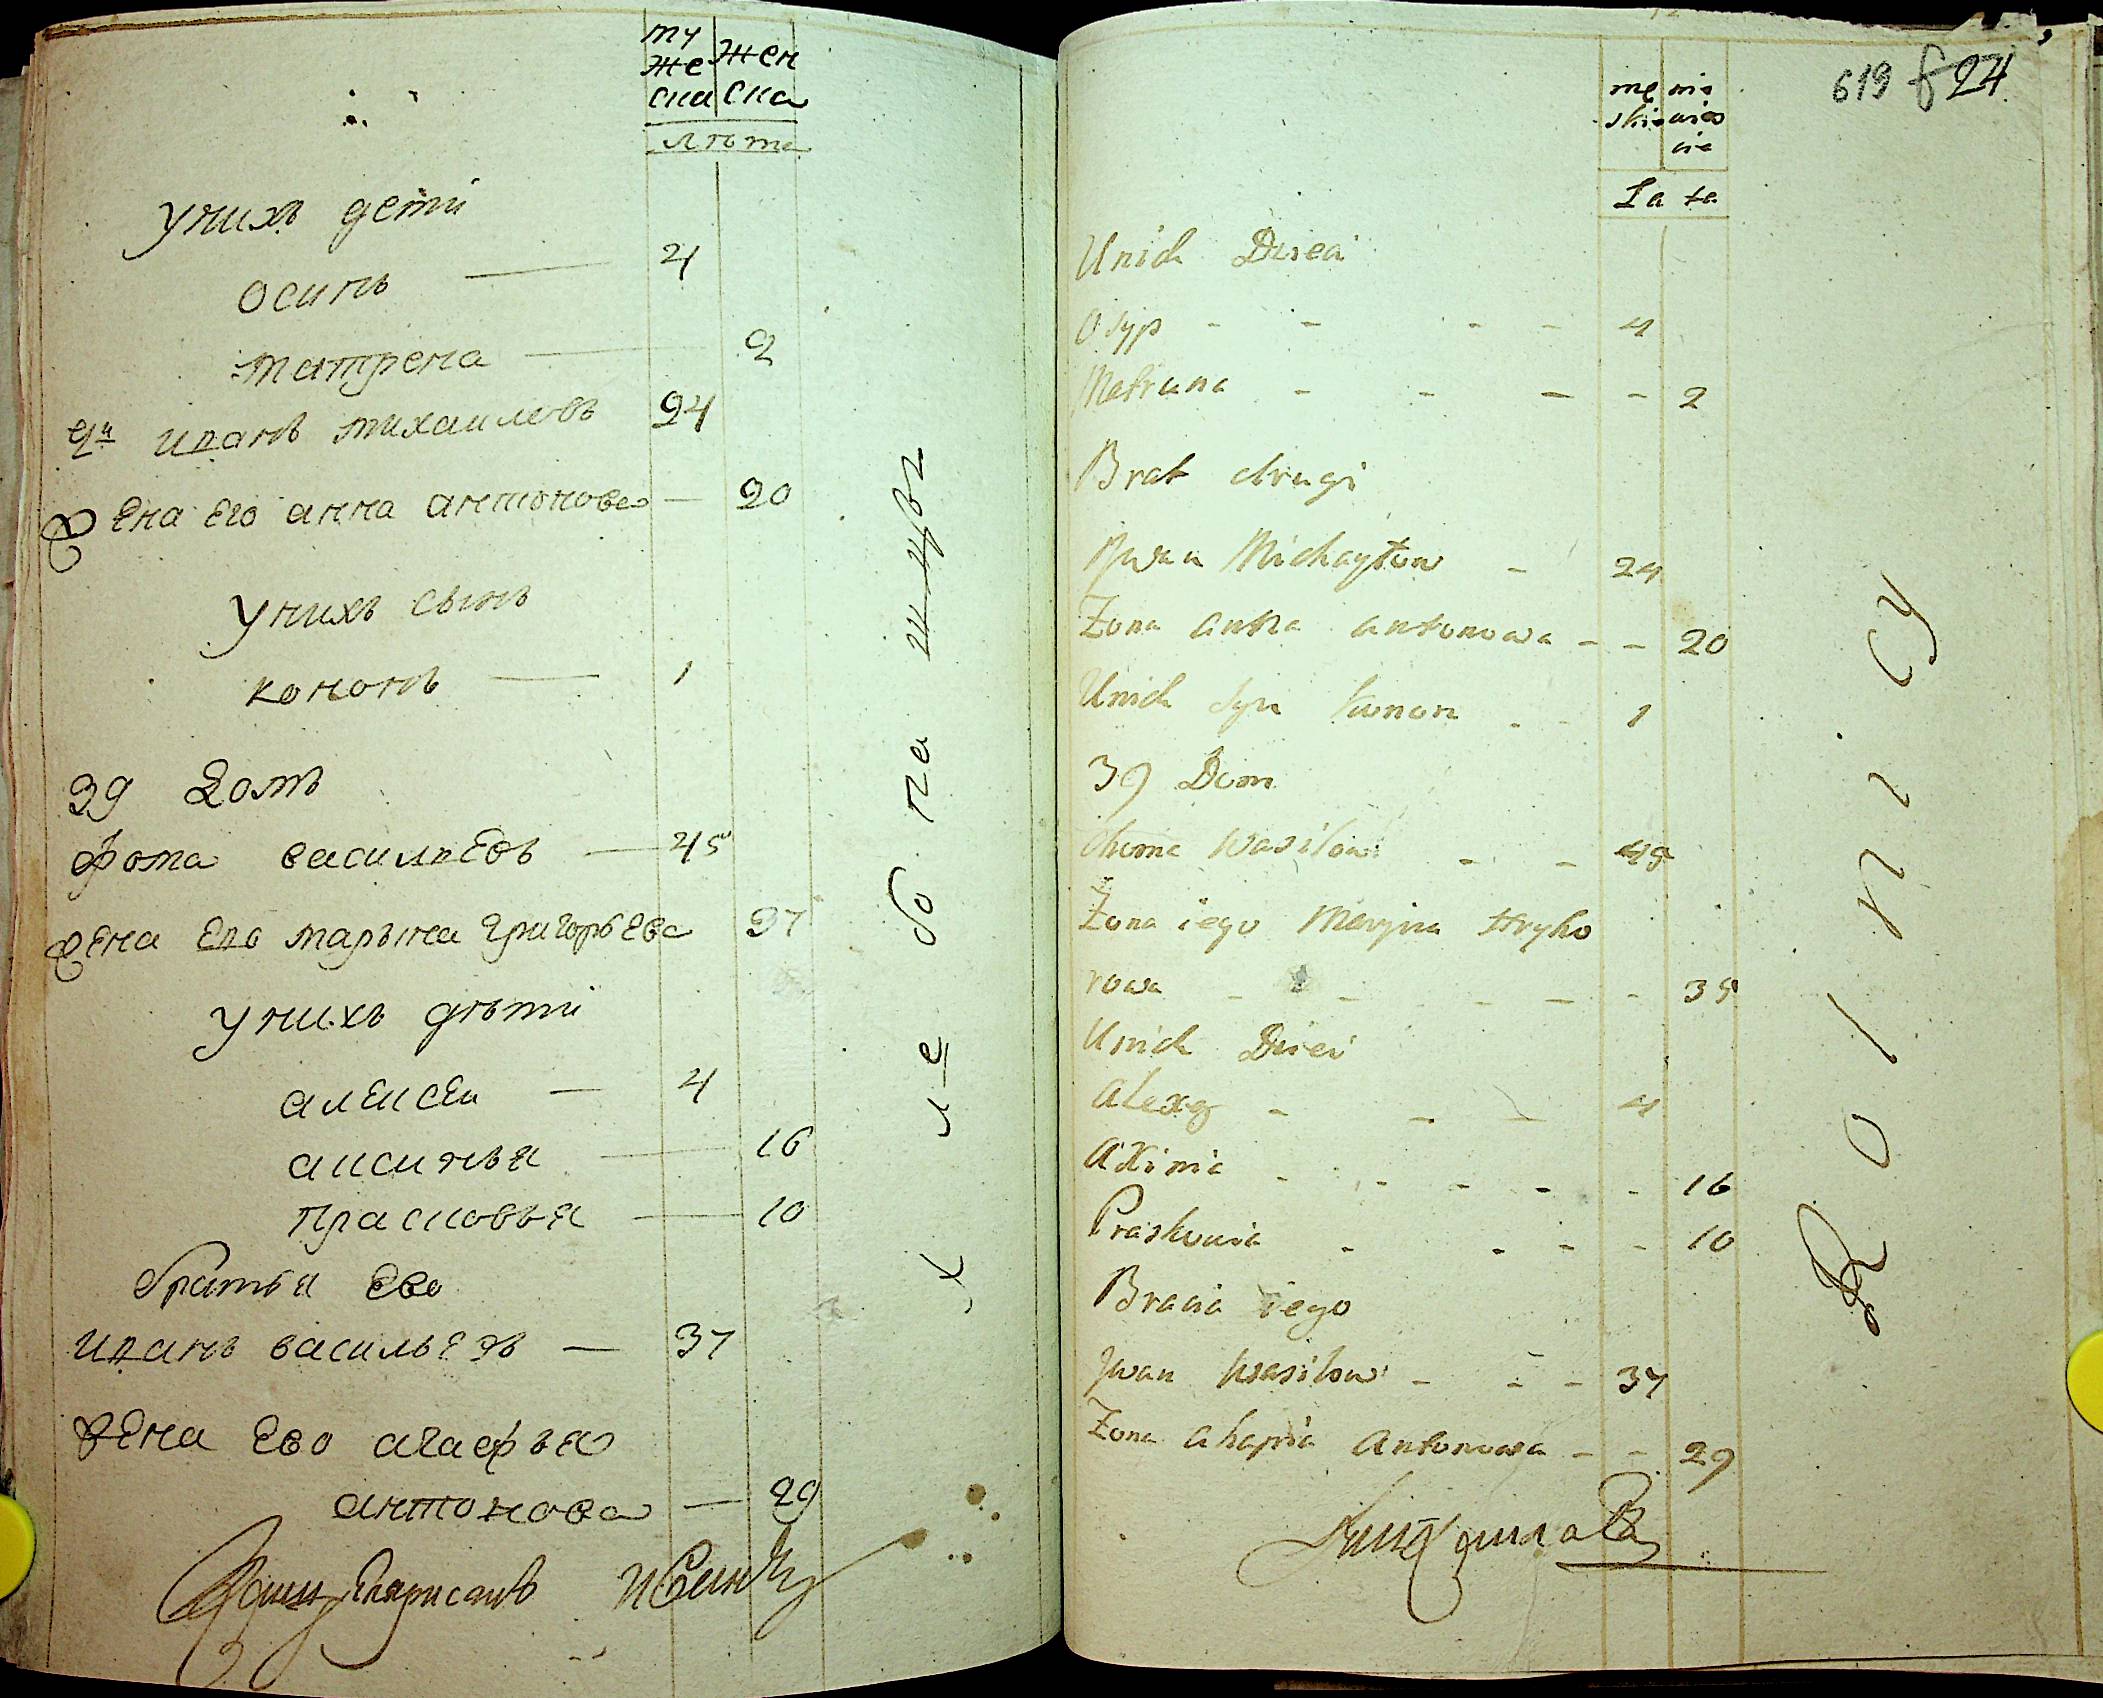 му
же жен
ска ска
лѣта
унихъ дети
осипъ — 4
матрена — 2
2й иванъ михаиловъ 24
жена его анна антонова — 20
унихъ сынъ
кононъ — 1
39 домъ
фома васильевъ — 45
жена ево марьина григорьева 37
унихъ дѣти
алексеи — 4
аксинья — 16
прасковья — 10
братья ево
иванъ васильевъ — 37
жена ево агафья
антонова — 29
хле бо па шцы
619 824
mę nie
skie wies
cie
La ta
Unich Dzieci
Osyp - - - - 4
Matruna - - - - 2
Brat drugi
Jwan Michayłow - 24
Zona anna antonowa - - 20
Unich Syn kunon - - 1
39 Dom
chema Wasilow - - 45
Żona iego Maryna Hryho
rowa - - - - - - 35
Unich Dzieci
alexey - - - 4
axinia - - - - - 16
Praskowia - - - - 10
Bracia iego
Jwan Wasilow - - - 37
Zona ahapia antonowa - - 29
Rolnicy